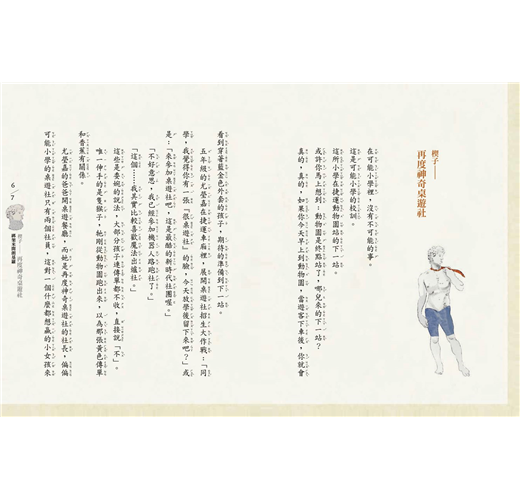 楔子——
再度神奇桌遊社
在可能小學裡，沒有不可能的事。
這是可能小學的校訓。
這所小學在捷運動物園站的下一站。
或許你馬上想到：動物園是終點站了，哪兒來的下一站？
真的，真的，如果你今天早上到動物園，當遊客下車後，你就會
看到穿著藍金色外套的孩子，期待的準備到下一站。
五年級的尤瑩嘉在捷運車廂裡，展開桌遊社招生大作戰：「同
學，我覺得你有一張『很桌遊社』的臉，今天放學後留下來吧？」或
是：「來參加桌遊社吧，這是最酷的新時代社團喔。」
「不好意思，我已經參加機器人路跑社了。」
「這個……我其實比較喜歡魔法出爐社。」
這些是委婉的說法，大部分孩子連傳單都不收，直接說「不」。
唯一伸手的是隻猴子，牠剛從動物園跑出來，以為那張黃色傳單
和香蕉有關係。
尤瑩嘉的爸爸開桌遊餐廳，而她是再度神奇桌遊社的社長，偏偏
可能小學的桌遊社只有兩個社員，這對一個什麼都想贏的小女孩來
6／7
楔子——再度神奇桌遊社